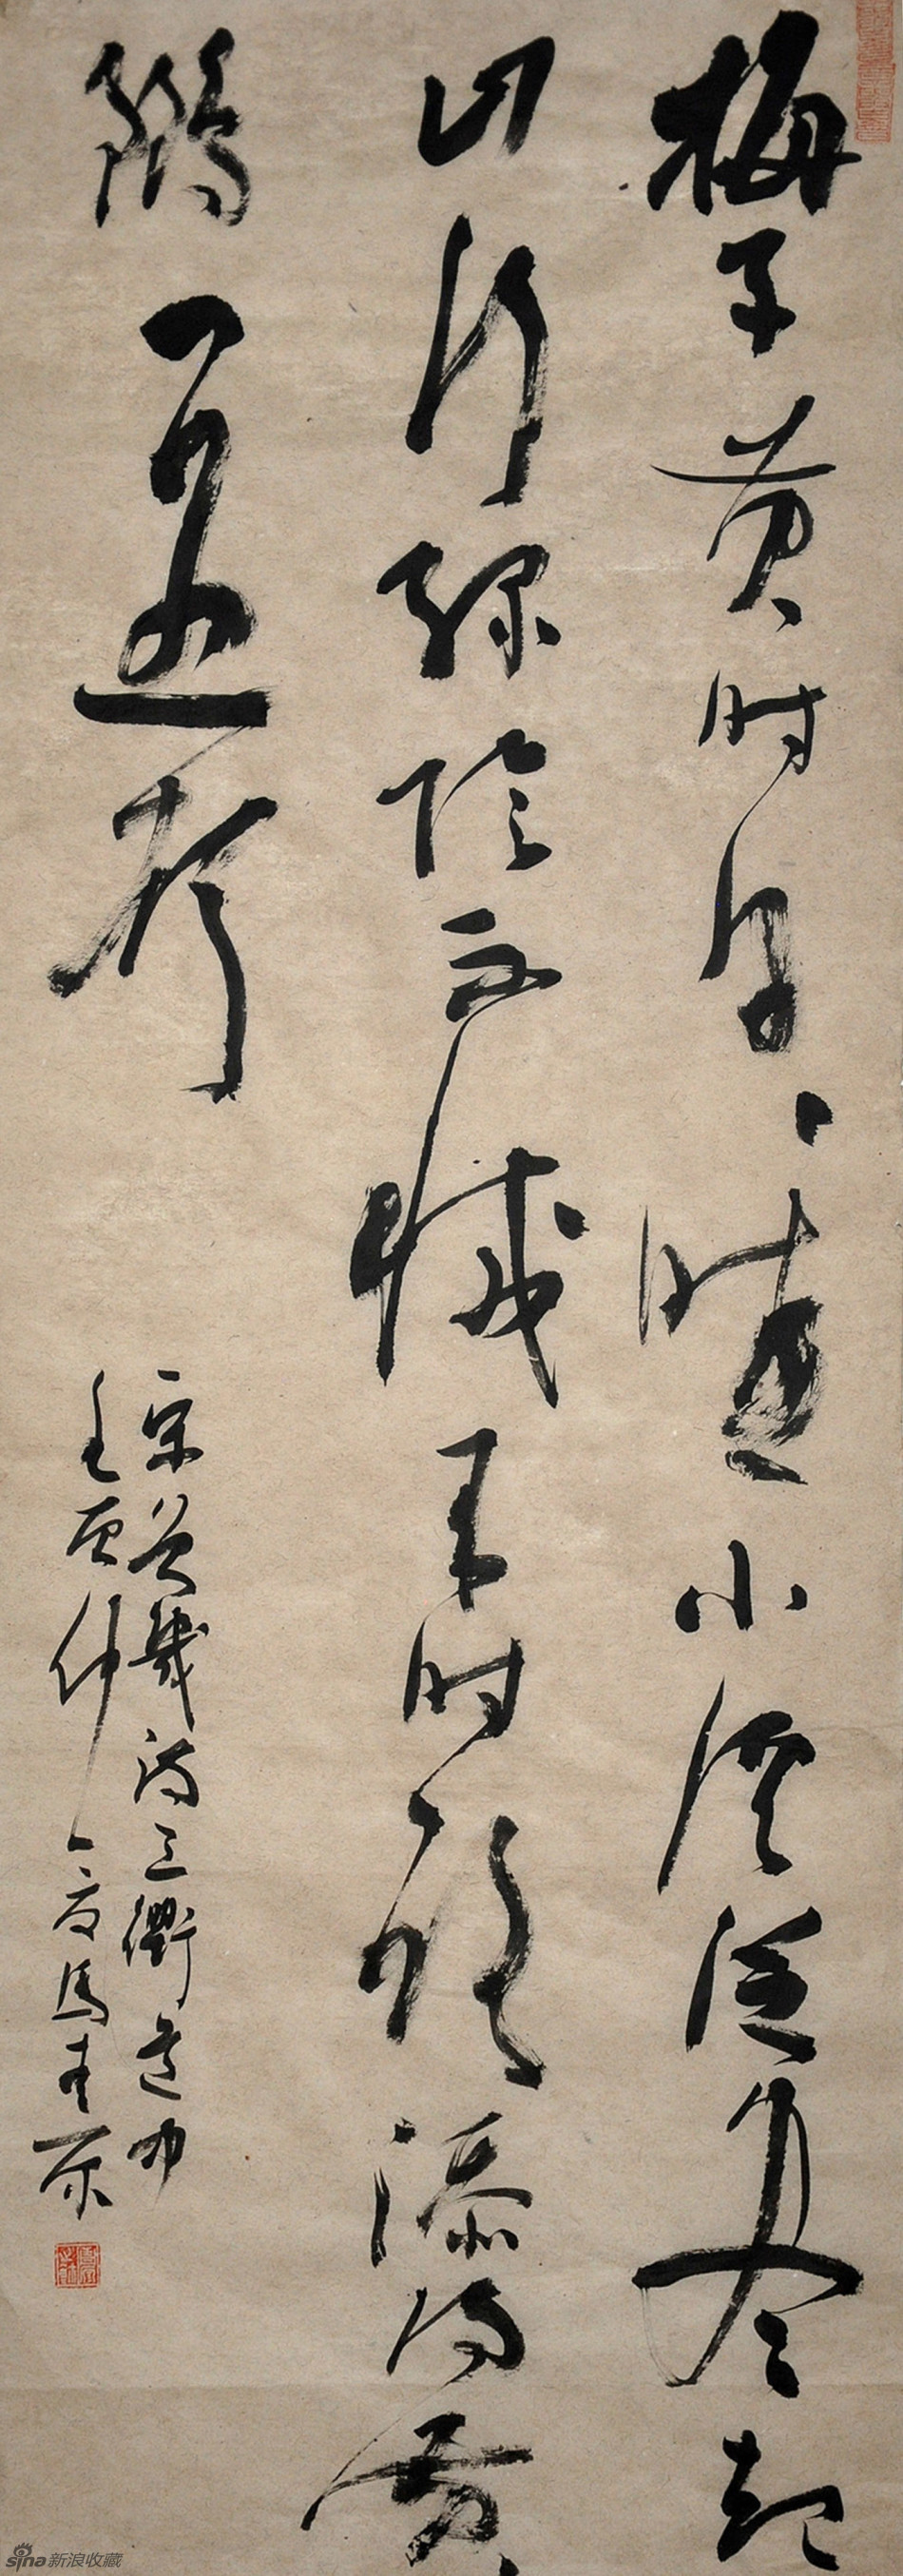 梅子黄时日、晴小溪泛尽却
山行绿阴不减来时路添得黄
鹂四五声
宋曾幾诗三衢道中
壬寅仲夏马
sina新浪收藏